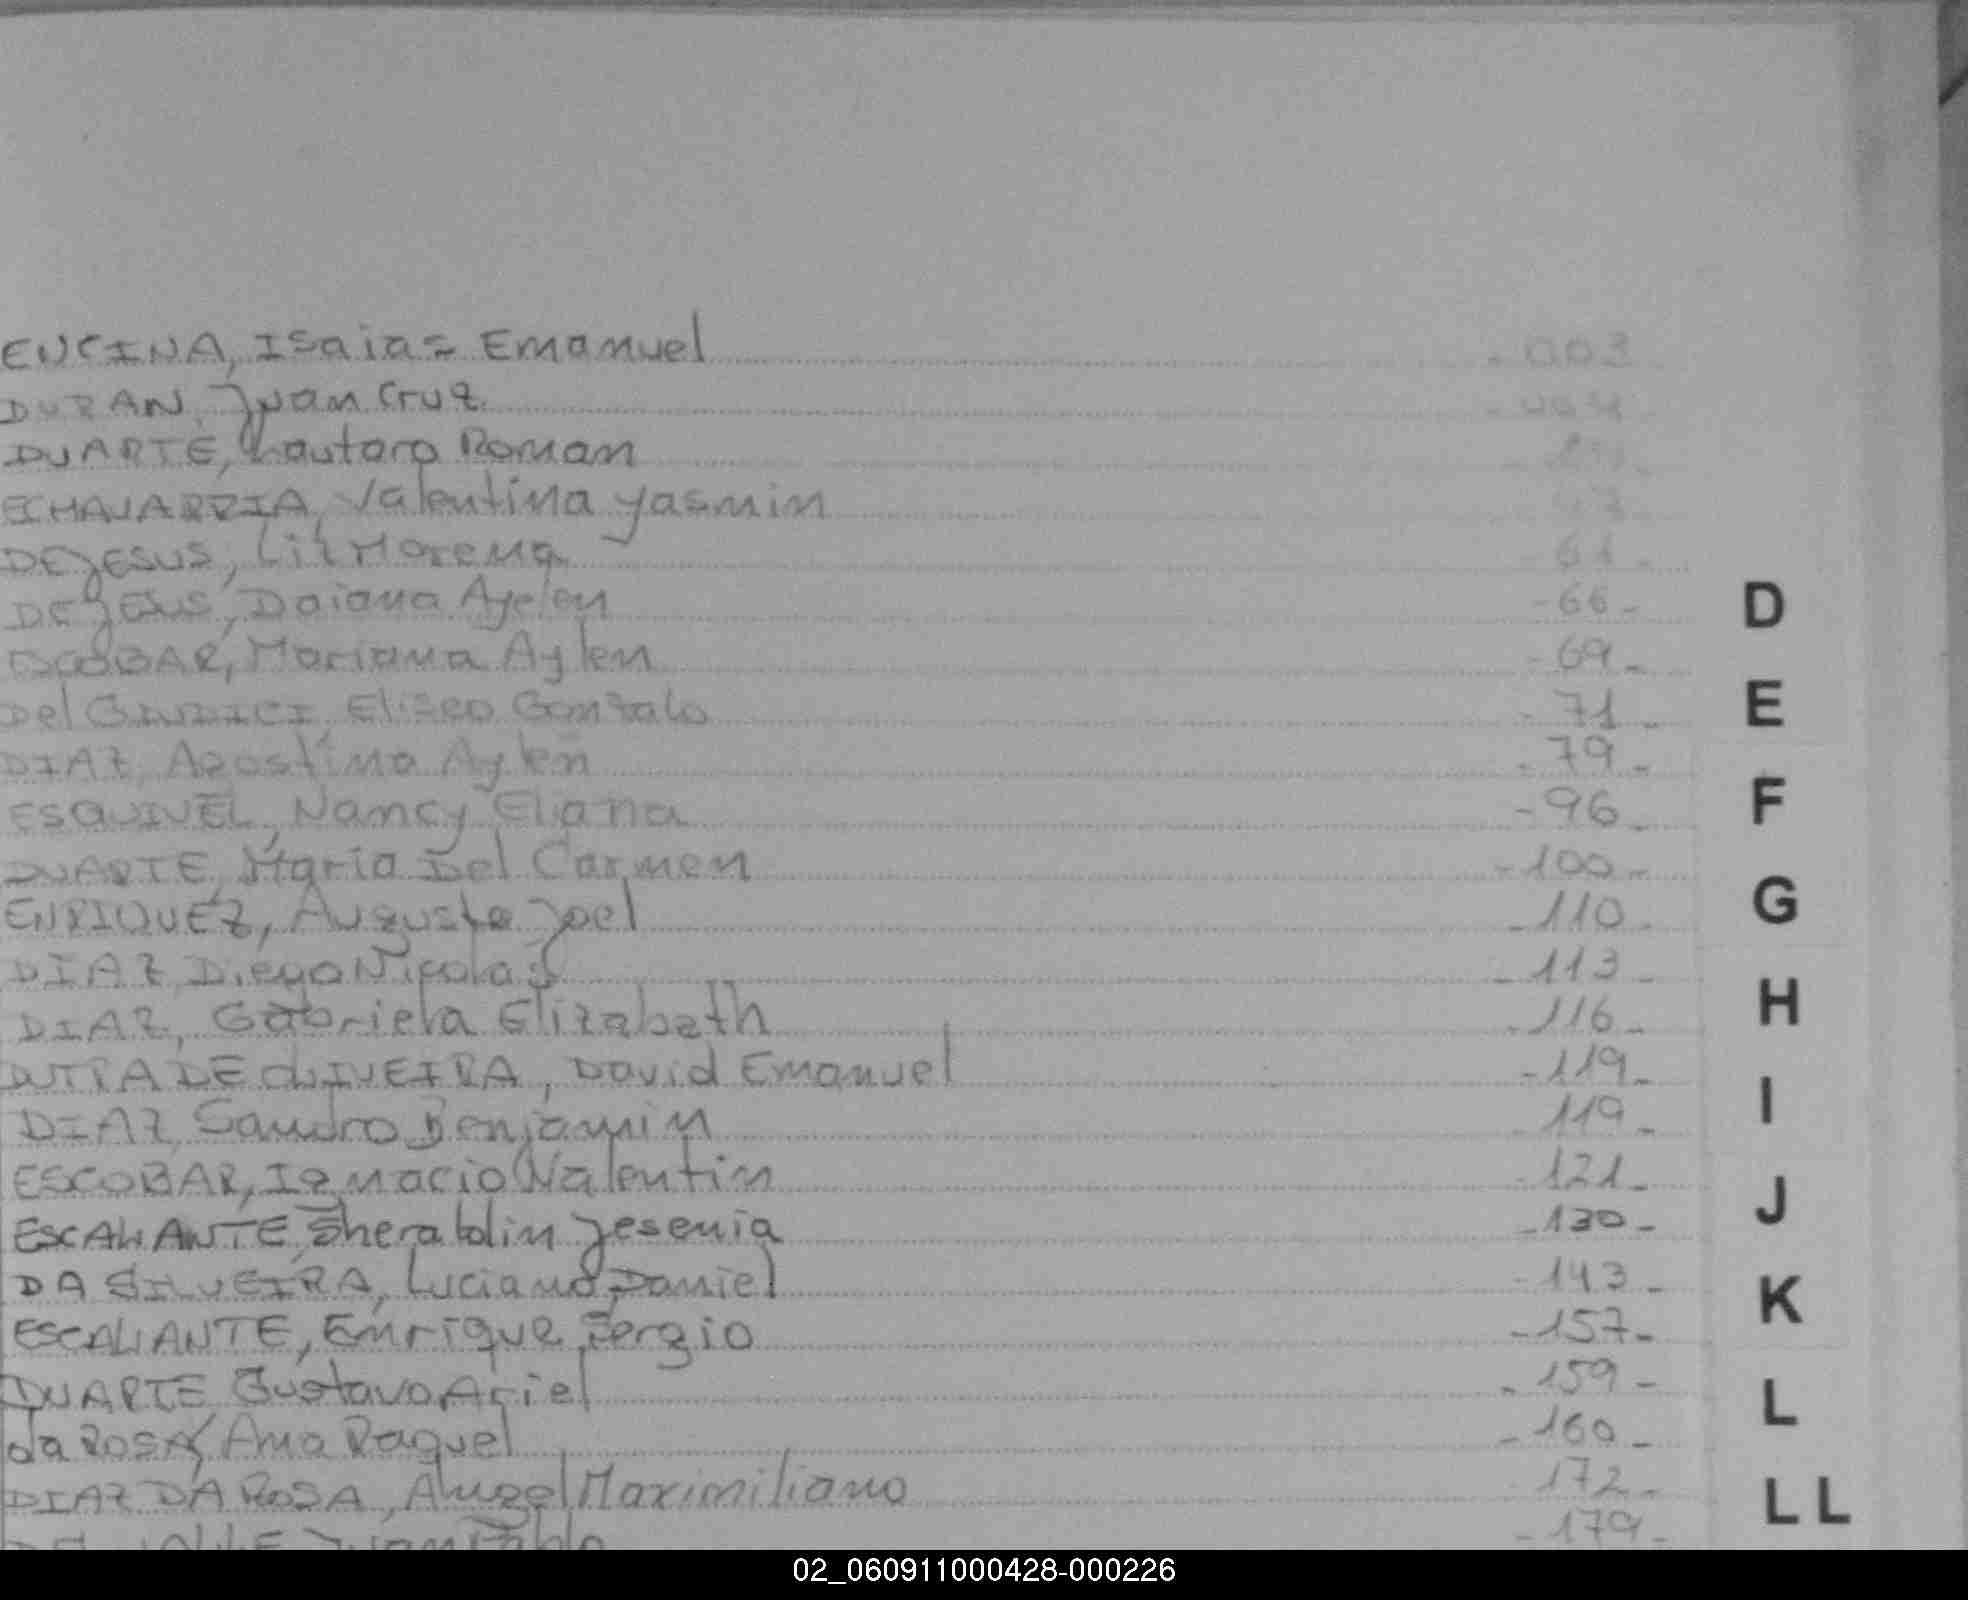 ENCINA, Isaias Emanuel - 003
DURAN, Juan Cruz
DUARTE, Lautaro Roman
ECHAVARRIA, Valentina yasmin
DEJESUS, Liz Morena - 61 -
DEJESUS, Daiana Ayelen - 66 -
ESCOBAR, Mariana Aylen - 69 -
Del GIUDICI, Eliseo Gonzalo - 71 -
DIAZ, Agostina Aylen - 79 -
ESQUIVEL, Nancy Eliana - 96 -
DUARTE, Maria Del Carmen - 100 -
ENRIQUEZ, Augusto Joel - 110 -
DIAZ, Diego Nicolas - 113 -
DIAZ, Gabriela Elizabeth - 116 -
DUTRA DE OLIVEIRA, David Emanuel - 119 -
DIAZ, Sandro Benjamin - 119 -
ESCOBAR, Ignacio Valentin - 121 -
ESCALANTE, Sheraldin Jesenia - 130 -
DA SILVEIRA, Luciano Daniel - 143 -
ESCALANTE, Enrique Sergio - 157 -
DUARTE, Gustavo Ariel - 159 -
da ROSA, Ana Raquel - 160 -
DIAZ DA ROSA, Angel Maximiliano - 172 -
- 179 -
D
E
F
G
H
I
J
K
L
LL
02_060911000428-000226